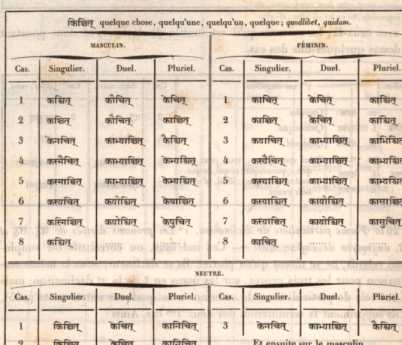 किञ्चित् quelque chose, quelqu'une, quelqu'un, quelque; quodlibet, quidam.
MASCULIN. FÉMININ.
Cas. Singulier. Duel. Pluriel. Cas. Singulier. Duel. Pluriel.
1 कश्चित् कौचित् केचित् 1 काचित् केचित् काश्चित्
2 कञ्चित् कौचित् कांश्चित् 2 काञ्चित् केचित् काश्चित्
3 केनचित् काभ्याञ्चित् कैश्चित् 3 कयाचित् काभ्याञ्चित् काभिश्चित्
4 कस्मैचित् काभ्याञ्चित् केभ्यश्चित् 4 कस्यैचित् काभ्याञ्चित्
5 कस्माच्चित् काभ्याञ्चित् केभ्यश्चित् 5 कस्याश्चित् काभ्याञ्चित्
6 कस्यचित् कयोश्चित् केषाञ्चित् 6 कस्याश्चित् कयोश्चित्
7 कस्मिंश्चित् कयोश्चित् केषुचित् 7 कस्याञ्चित् कयोश्चित् कासुचित्
8 कश्चित् ...... ...... 8 काचित् ...... ......
NEUTRE.
Cas. Singulier. Duel. Pluriel. Cas. Singulier. Duel. Pluriel.
1 किञ्चित् केचित् कानिचित् 3 केनचित् काभ्याञ्चित् कैश्चित्
2 किञ्चित् केचित् कानिचित् Et ensuite sur le masculin